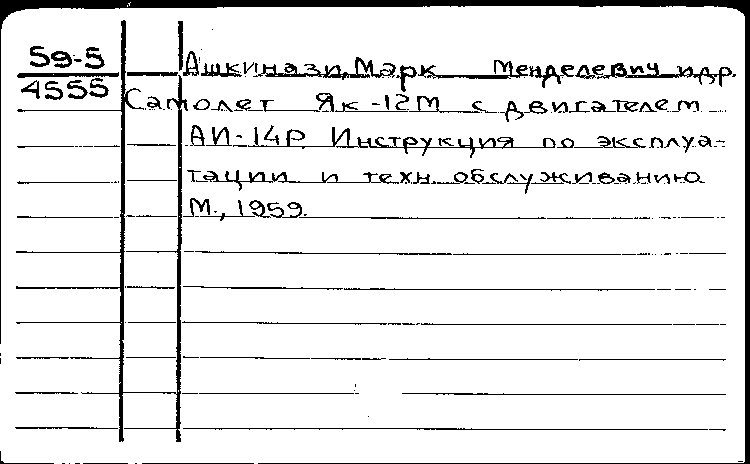 59-5 Ашкинази, Марк Менделевич и др.
4555 Самолет Як-12М с двигателем
АИ-14Р. Инструкция по эксплуа-
тации и техн. обслуживанию
М., 1959.